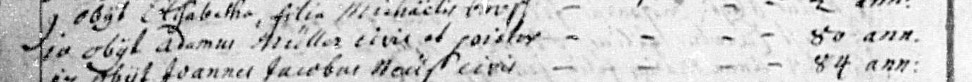 obijt Elisabetha, filia Michaelis
obijt Adamus Müller civis et pistor - - - - 80 ann.
obijt Joannes Jacobus civis - - - - 84 ann: